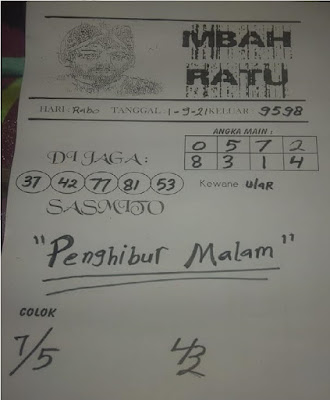 MBAH
RATU
HARI : Rabo TANGGAL : 1-9-21 KELUAR : 9598
ANGKA MAIN :
0 5 7 2
8 3 1 4
DI JAGA :
37 42 77 81 53
Kewane ULAR
SASMITO
"Penghibur Malam"
COLOK
7/5
4/2